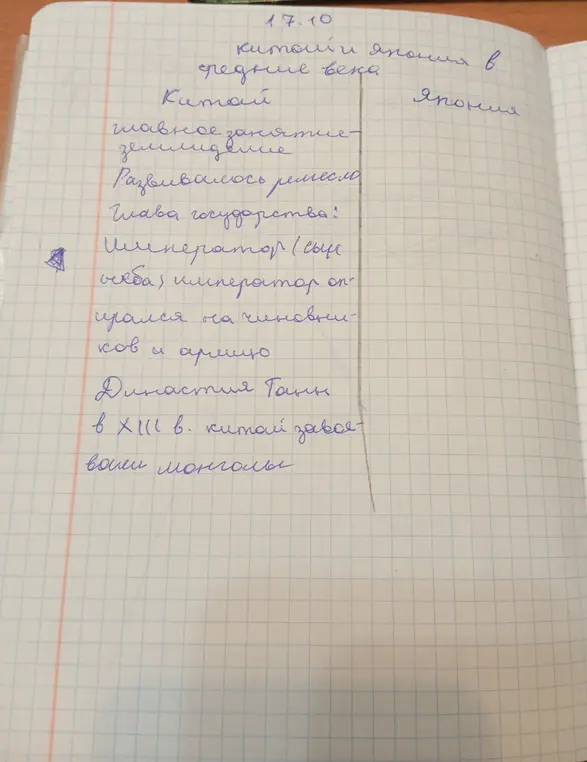 17.10
Китай и Япония в
средние века
Китай
Япония
главное занятие-
землиделие
Развивалось ремесло
Глава государства:
Император (сын
неба) император оп-
ирался на чиновни-
ков и армию
Династия Танн
в XIII в. китай завоя-
вали монголы